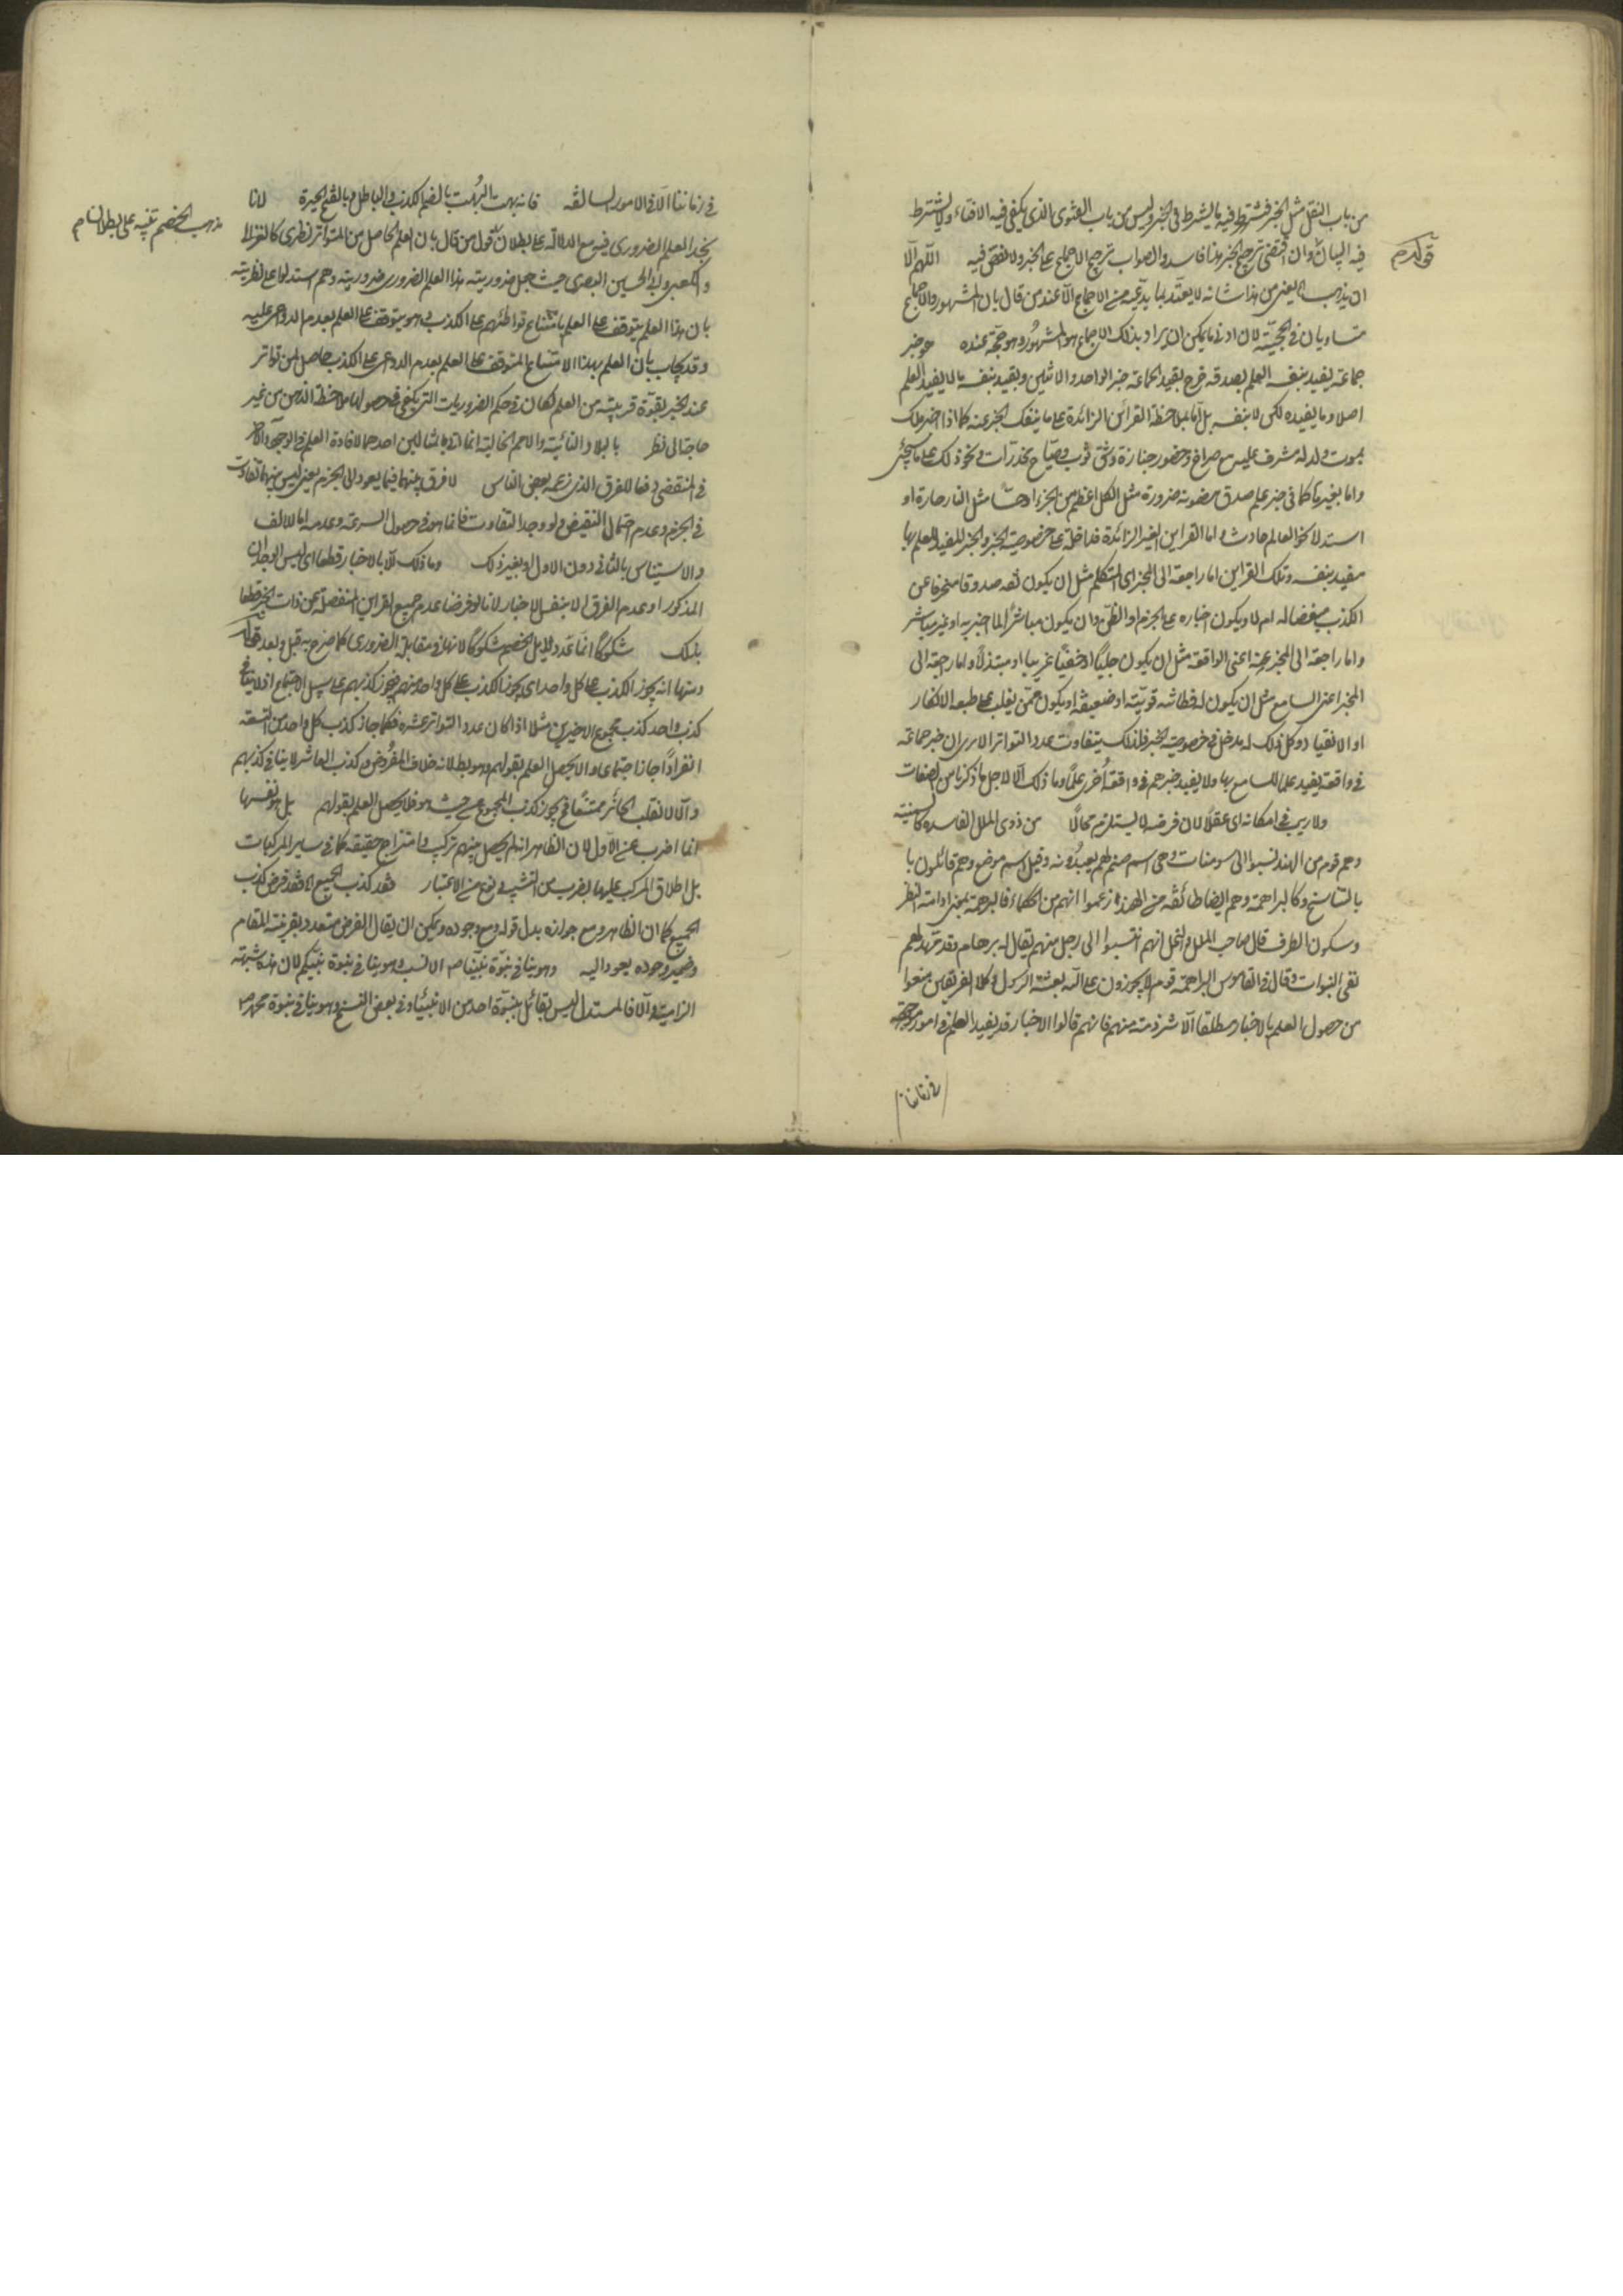 من باب النقل مثل الخبر فيشترط فيه ما يشترط في الخبر وليس من باب الفتوى الذي يكفي فيه الافتاء ولا يشترط
فيه البيان وان اقتضى ترجيح الخبر هذا فاسد والصواب ترجيح الاجماع على الخبر ولا نقض فيه اللهم الا
ان يذهب يعني من هذا شانه لا يعتد بما يدعيه من الاجماع الا عند من قال بان المشهور والاجماع
متساويان في الحجية لان ادنى ما يمكن ان يراد بذلك الاجماع هو المشهور وهو حجة عنده هو خبر
جماعة يفيد بنفسه العلم بصدقه خرج بقيد الجماعة خبر الواحد والاثنين وبقيد بنفسه ما لا يفيد العلم
اصلا وما يفيده لكن لا بنفسه بل اما بملاحظة القرائن الزائدة على ما ينفك الخبر عنه كما اذا اخبر ملك
بموت ولد له مشرف عليه مع صراخ وحضور جنازة وشق ثوب وصياح مخدرات ونحو ذلك على ما سيجئ
واما بغيرها كما في خبر علم صدق مضمونه ضرورة مثل الكل اعظم من الجزء او حسا مثل النار حارة او
استدلالا نحو العالم حادث واما القراين الغير الزائدة فداخلة في خصوصية الخبر والخبر المفيد للعلم بها
مفيد بنفسه وتلك القراين اما راجعة الى المخبر اي المتكلم مثل ان يكون ثقة صدوقا منحرفا عن
الكذب مبغضا له ام لا ويكون اخباره على الجزم او الظن وان يكون مباشرا لما اخبر به او غير مباشر
واما راجعة الى المخبر عنه اعني الواقعة مثل ان يكون جليا او خفيا غريبا او مبتذلا واما راجعة الى
المخبر اعني السامع مثل ان يكون له فطانة قوية او ضعيفة او يكون ممن يغلب على طبعه الانكار
او الانقياد وكل ذلك له مدخل في خصوصية الخبر فلذلك يتفاوت عدد التواتر الا يرى ان خبر جماعة
في واقعة يفيد علما للسامع بها ولا يفيد خبرهم في واقعة اخرى علما وما ذلك الا لاجل ما ذكرنا من الصفات
ولا ريب في امكانه اي عقلا لان فرضه لا يستلزم محالا من ذوي الملل الفاسدة كالسمنية
وهم قوم من الهند نسبوا الى سومنات وهي اسم صنم لهم يعبدونه وقيل اسم موضع وهم قائلون با
بالتناسخ وكالبراهمة وهم ايضا طائفة من الهند زعموا انهم من الحكماء فالبرهمة بمعنى ادامة النظر
وسكون الطرف قال صاحب الملل والنحل انهم انتسبوا الى رجل منهم يقال له برهام وقد تمهد لهم
نفي النبوات وقال في القاموس البراهمة قوم لا يجوزون على الله بعثة الرسل وكلا الفريقين منعوا
من حصول العلم بالاخبار مطلقا الا شرذمة منهم فانهم قالوا الاخبار قد يفيد العلم في امور موجودة
في زماننا
قوله م
في زماننا الا في الامور السالفة فانه بهت البهت بالضم الكذب والباطل وبالفتح الحيرة لانا
نجد العلم الضروري فيه مع الدلالة على بطلان قول من قال بان العلم الحاصل من المتواتر نظري كالغزالي
والكعبي وابي الحسين البصري حيث جعل ضروريته هذا العلم الضروري ضرورية وهم استدلوا على نظريته
بان هذا العلم يتوقف على العلم بامتناع تواطئهم على الكذب وهو يتوقف على العلم بعدم الدواعي عليه
وقد يجاب بان العلم بهذا الامتناع المتوقف على العلم بعدم الدواعي على الكذب حاصل لمن تواتر
عنده الخبر بقوة قريبة من العلم فكان في حكم الضروريات التي يكفي في حصولها ملاحظة الذهن من غير
حاجة الى نظر بالبلاد النائية والامم الخالية انما اتى بمثالين احدهما لافادة العلم في الموجود والآخر
في المنقضي دفعا للفرق الذي زعمه بعض الناس لا فرق بينهما فيما يعود الى الجزم يعني ليس بينهما تفاوت
في الجزم وعدم احتمال النقيض ولو وجد التفاوت فانما هو في حصول السرعة وعدمه اما للالف
والاستيناس بالثاني دون الاول او بغير ذلك وما ذلك الا بالاخبار قطعا اي ليس الوجدان
المذكور او عدم الفرق الا بنفس الاخبار لانا لو فرضنا عدم جميع القراين المنفصلة عن ذات الخبر قطعنا
بذلك شكوكا انما عد دلايل الخصم شكوكا لانها في مقابلة الضروري كما صرح به قبل وبعد قوله
ومنها انه يجوز الكذب على كل واحد اي يجوز الكذب على كل واحد منهم فيجوز كذبهم على سبيل الاجتماع اذ لا ينافي
كذب واحد كذب مجموع الاخيرين مثلا اذا كان عدد التواتر عشرة فكما جاز كذب كل واحد من التسعة
انفرادا جاز اجتماعا والا يحصل العلم بقولهم وهو بطلانه خلاف المفروض وكذب العاشر لا ينافي كذبهم
والا لانقلب الجائز ممتنعا فيجوز كذب المجموع من حيث هو فلا يحصل العلم بقولهم بل هو نفسها
انما اضرب عن الاول لان الظاهر انه لم يحصل منهم تركيب وامتزاج حقيقة كما في ساير المركبات
بل اطلاق المركب عليها بضرب من التشبيه ونوع من الاعتبار فقد كذب الجميع اي فقد فرض كذب
الجميع كما ان الظاهر ومع جوازه بدل قوله ومع وجوده ويمكن ان يقال الفرض متعدد بقرينة المقام
وضمير وجوده يعود اليه وهو ينافي نبوة نبينا ص الانسب وهو ينافي نبوة نبيكم لان هذه شبهة
الزامية والا فالمستدل ليس بقائل بنبوة احد من الانبياء وفي بعض النسخ وهو ينافي نبوة محمد ص
مذهب الخصم تنبيه على بطلان م